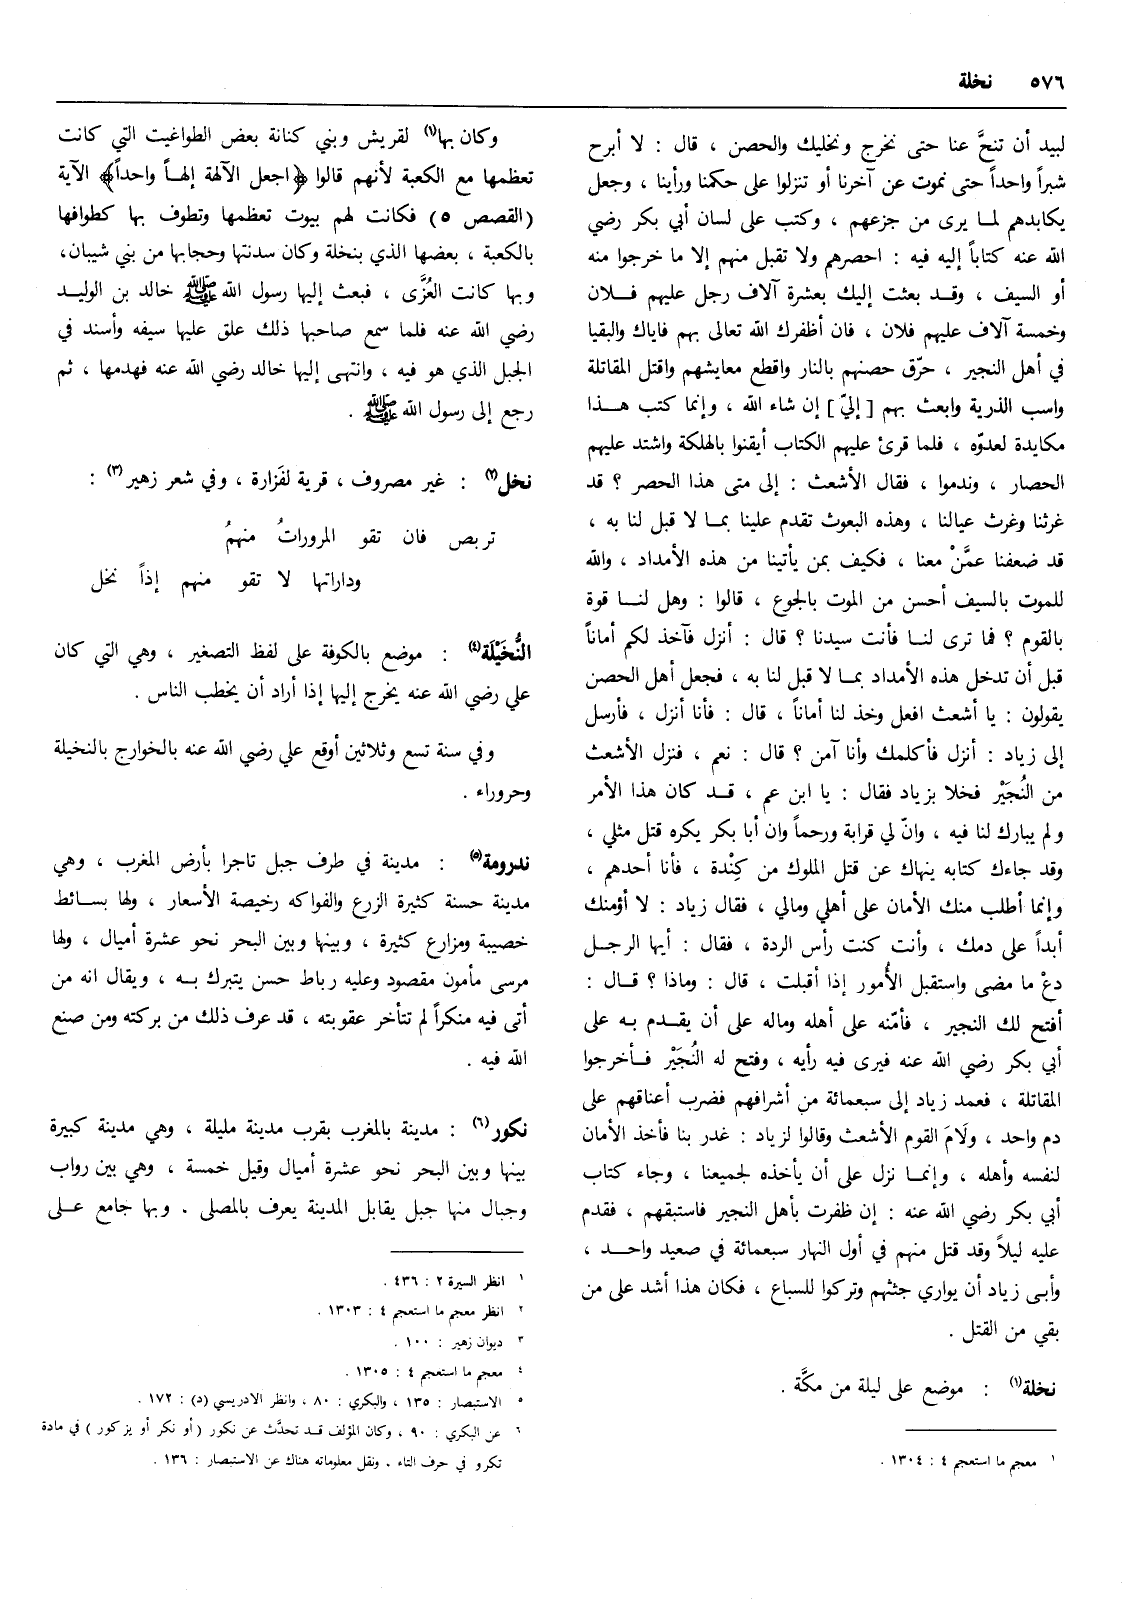 ٥٧٦ نخلة
لبيد أن تنحَّ عنا حتى نخرج ونخليك والحصن ، قال : لا أبرح
شبراً واحداً حتى نموت عن آخرنا أو تنزلوا على حكمنا ورأينا ، وجعل
يكابدهم لمـا يرى من جزعهم ، وكتب على لسان أبي بكر رضي
الله عنه كتاباً إليه فيه : احصرهم ولا تقبل منهم إلا ما خرجوا منه
أو السيف ، وقـد بعثت إليك بعشرة آلاف رجل عليهم فـلان
وخمسة آلاف عليهم فلان ، فان أظفرك الله تعالى بهم فاياك والبقيا
في أهل النجير ، حرّق حصنهم بالنار واقطع معايشهم واقتل المقاتلة
واسب الذرية وابعث بهم [ إليّ ] إن شاء الله ، وإنما كتب هـذا
مكايدة لعدوّه ، فلما قرئ عليهم الكتاب أيقنوا بالهلكة واشتد عليهم
الحصار ، وندموا ، فقال الأشعث : إلى متى هذا الحصر ؟ قد
غرثنا وغرث عيالنا ، وهذه البعوث تقدم علينا بمـا لا قبل لنا به ،
قد ضعفنا عمَّنْ معنا ، فكيف بمن يأتينا من هذه الأمداد ، والله
للموت بالسيف أحسن من الموت بالجوع ، قالوا : وهل لنـا قوة
بالقوم ؟ فما ترى لنـا فأنت سيدنا ؟ قال : أنزل فآخذ لكم أماناً
قبل أن تدخل هذه الأمداد بمـا لا قبل لنا به ، فجعل أهل الحصن
يقولون : يا أشعث افعل وخذ لنا أماناً ، قال : فأنا أنزل ، فأرسل
إلى زياد : أنزل فأكلمك وأنا آمن ؟ قال : نعم ، فنزل الأشعث
من النُجَيْر فخلا بزياد فقال : يا ابن عم ، قـد كان هذا الأمر
ولم يبارك لنا فيه ، وانّ لي قرابة ورحماً وان أبا بكر يكره قتل مثلي ،
وقد جاءك كتابه ينهاك عن قتل الملوك من كِنْدة ، فأنا أحدهم ،
وإنما أطلب منك الأمان على أهلي ومالي ، فقال زياد : لا أؤمنك
أبداً على دمك ، وأنت كنت رأس الردة ، فقال : أيها الرجـل
دعْ ما مضى واستقبل الأُمور إذا أقبلت ، قال : وماذا ؟ قـال :
أفتح لك النجير ، فأمّنه على أهله وماله على أن يقـدم بـه على
أبي بكر رضي الله عنه فيرى فيه رأيه ، وفتح له النُجَيْر فـأخرجوا
المقاتلة ، فعمد زياد إلى سبعمائة من أشرافهم فضرب أعناقهم على
دم واحد ، ولَامَ القوم الأشعث وقالوا لزياد : غدر بنا فأخذ الأمان
لنفسه وأهله ، وإنمـا نزل على أن يأخذه لجميعنا ، وجاء كتاب
أبي بكر رضي الله عنه : إن ظفرت بأهل النجير فاستبقهم ، فقدم
عليه ليلاً وقد قتل منهم في أول النهار سبعمائة في صعيد واحـد ،
وأبـى زياد أن يواري جثثهم وتركوا للسباع ، فكان هذا أشد على من
بقي من القتل .
نخلة(١) : موضع على ليلة من مكَّة .
١ معجم ما استعجم ٤ : ١٣٠٤ .
وكان بها(١) لقريش وبني كنانة بعض الطواغيت التي كانت
تعظمها مع الكعبة لأنهم قالوا ﴿اجعل الآلهة إلهـاً واحداً﴾ الآية
(القصص ٥) فكانت لهم بيوت تعظمها وتطوف بها كطوافها
بالكعبة ، بعضها الذي بنخلة وكان سدنتها وحجابها من بني شيبان،
وبها كانت العُزَّى ، فبعث إليها رسول الله ﷺ خالد بن الوليـد
رضي الله عنه فلما سمع صاحبها ذلك علق عليها سيفه وأسند في
الجبل الذي هو فيه ، وانتهى إليها خالد رضي الله عنه فهدمها ، ثم
رجع إلى رسول الله ﷺ .
نخل(٢) : غير مصروف ، قرية لفَزارة ، وفي شعر زهير(٣) :
تربص فان تقو المرورات منهمُ
وداراتها لا تقو منهم إذاً نخل
النُّخَيْلَة(٤) : موضع بالكوفة على لفظ التصغير ، وهي التي كان
علي رضي الله عنه يخرج إليها إذا أراد أن يخطب الناس .
وفي سنة تسع وثلاثين أوقع علي رضي الله عنه بالخوارج بالنخيلة
وحروراء .
ندرومة(٥) : مدينة في طرف جبل تاجرا بأرض المغرب ، وهي
مدينة حسنة كثيرة الزرع والفواكه رخيصة الأسعار ، ولها بسـائط
خصيبة ومزارع كثيرة ، وبينها وبين البحر نحو عشرة أميال ، ولها
مرسى مأمون مقصود وعليه رباط حسن يتبرك بـه ، ويقال انه من
أتى فيه منكراً لم تتأخر عقوبته ، قد عرف ذلك من بركته ومن صنع
الله فيه .
نكور(٦) : مدينة بالمغرب بقرب مدينة مليلة ، وهي مدينة كبيرة
بينها وبين البحر نحو عشرة أميال وقيل خمسة ، وهي بين رواب
وجبال منها جبل يقابل المدينة يعرف بالمصلى . وبها جامع عـلى
١ انظر السيرة ٢ : ٤٣٦ .
٢ انظر معجم ما استعجم ٤ : ١٣٠٣ .
٣ ديوان زهير : ١٠٠ .
٤ معجم ما استعجم ٤ : ١٣٠٥ .
٥ الاستبصار : ١٣٥ ، والبكري : ٨٠ ، وانظر الادريسي (د) : ١٧٢ .
٦ عن البكري : ٩٠ ، وكان المؤلف قـد تحدَّث عن نكور ( أو نكر أو يزكور ) في مادة
تكرو في حرف التاء . ونقل معلوماته هناك عن الاستبصار : ١٣٦ .